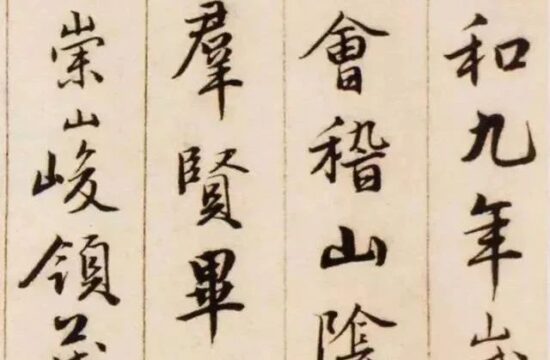 和九年歲
會稽山陰
羣賢畢
崇山峻領茂